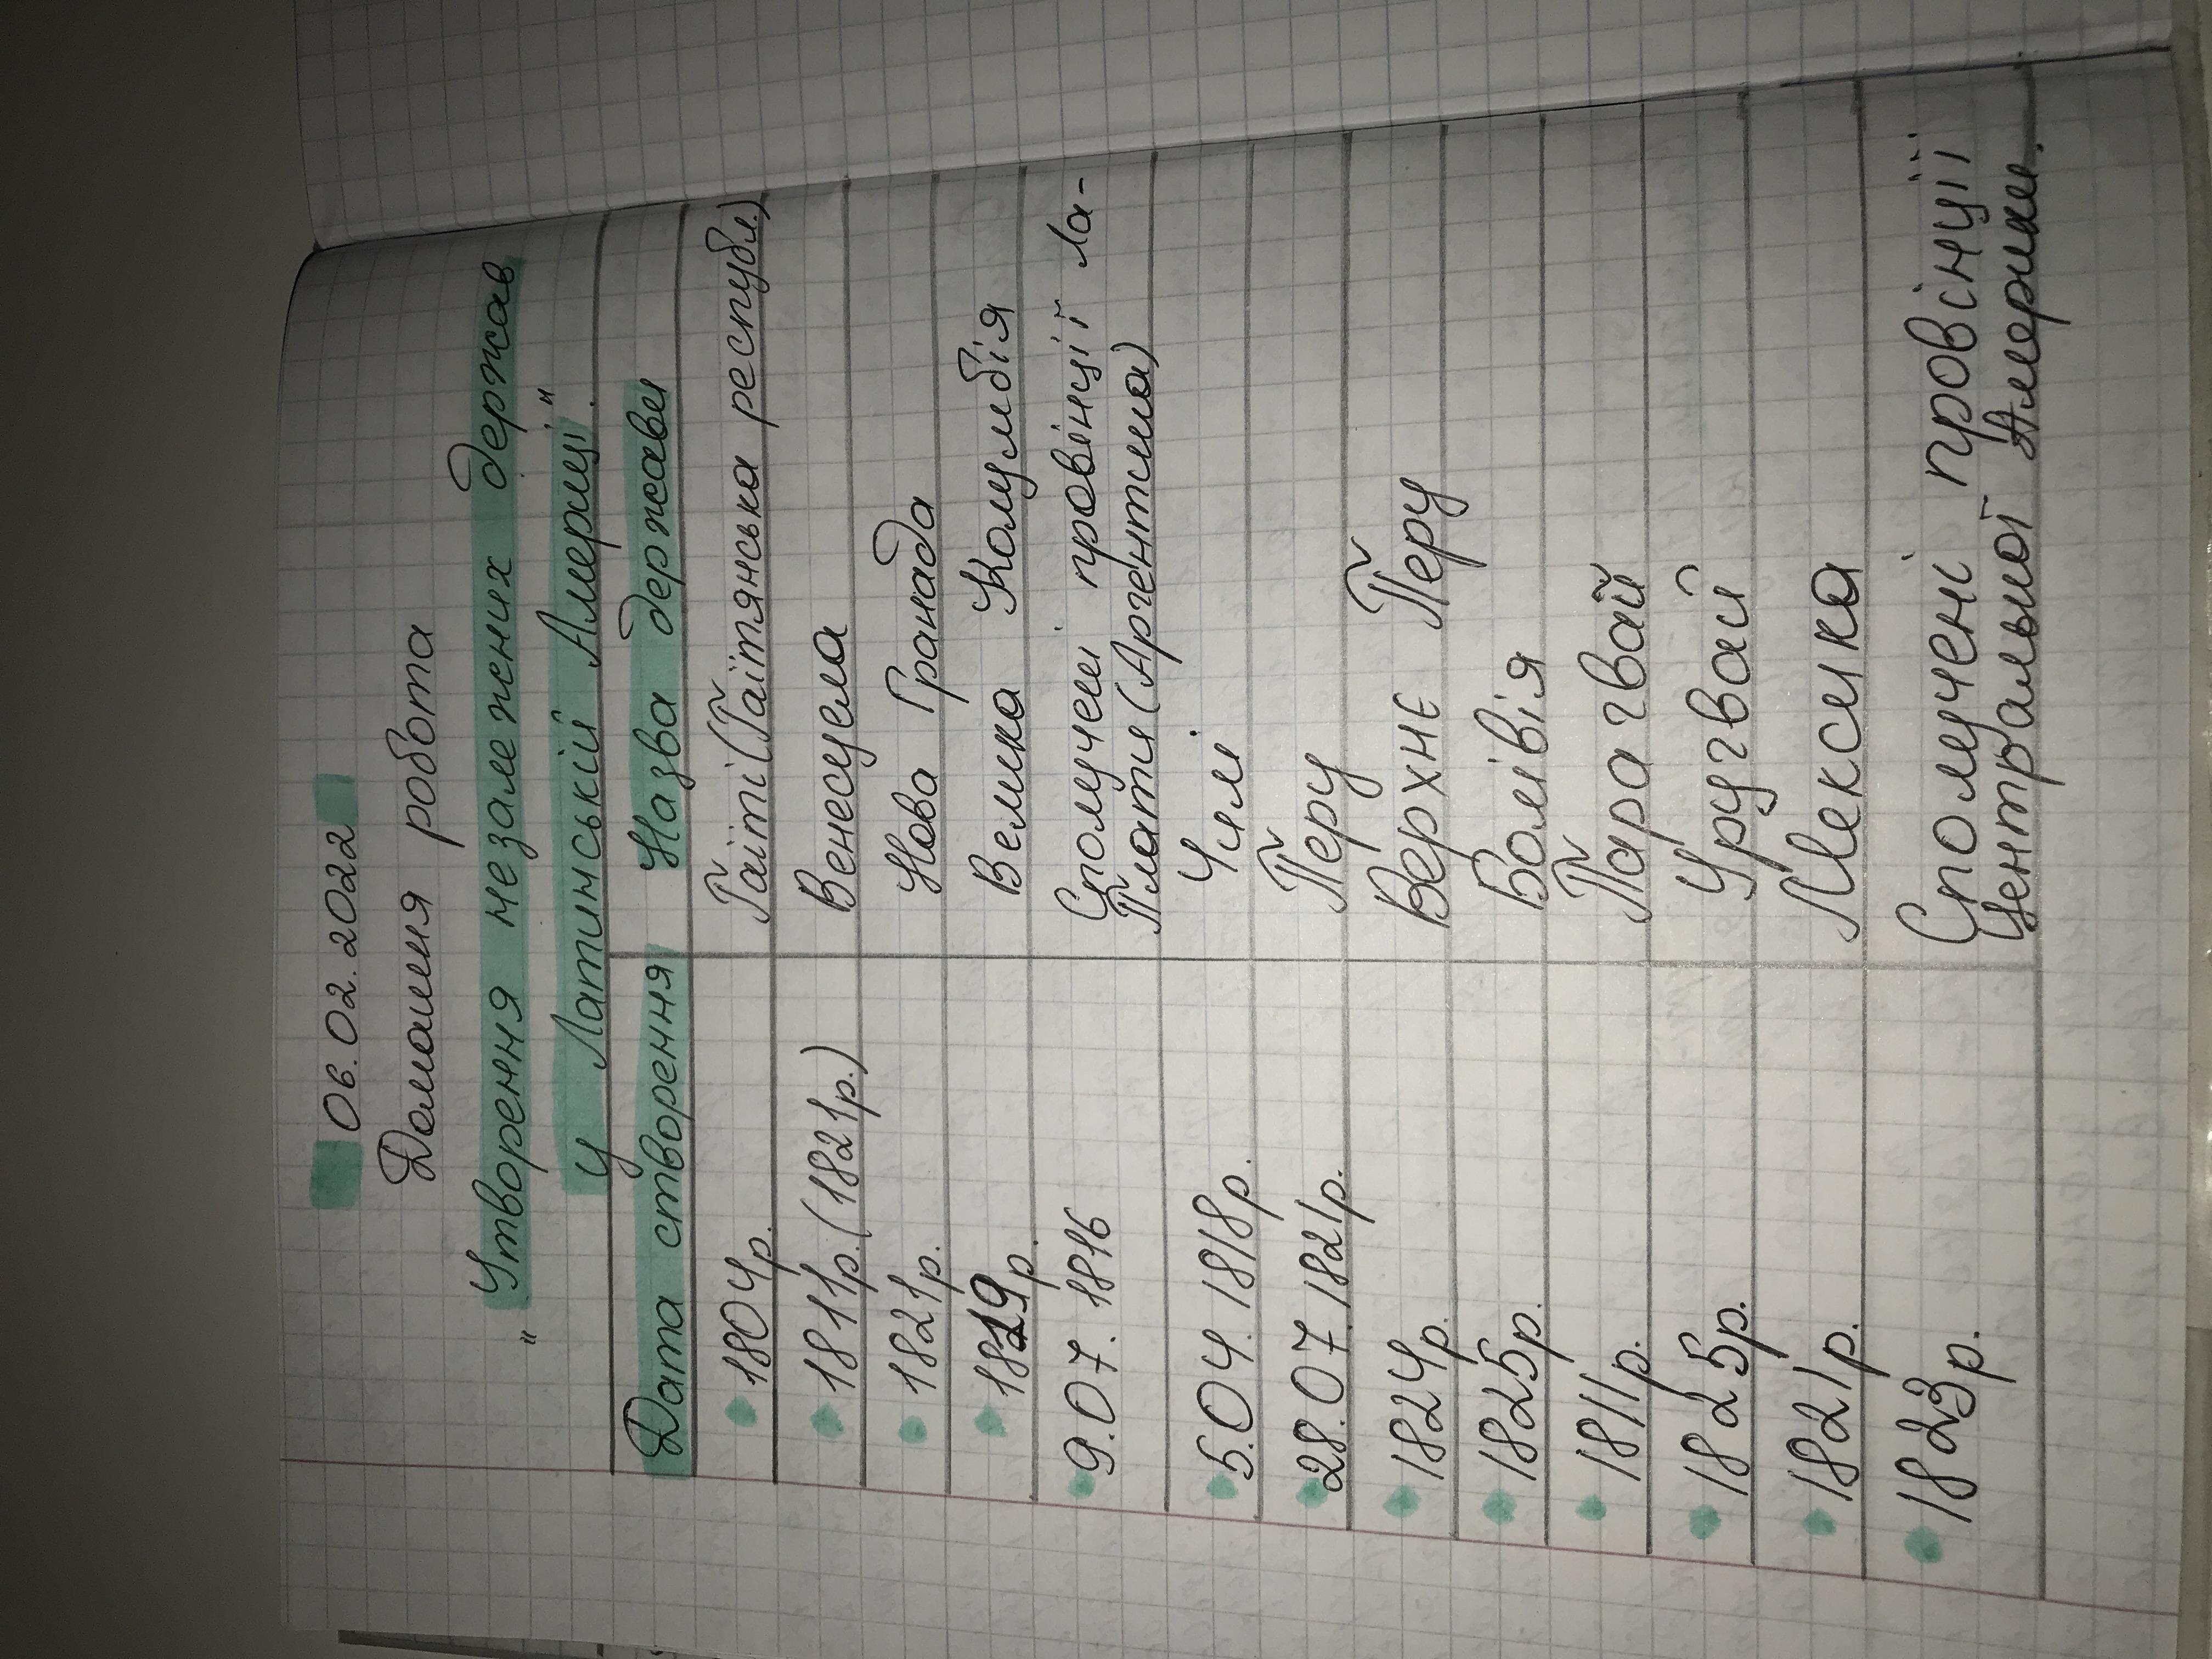 06.02.2022
Домашня робота
"Утворення незалежних держав
у Латинській Америці".
Дата створення Назва держави
1804р. Гаїті (Гаїтянська республ.)
1811р. (1821р.) Венесуела
1821р. Нова Гранада
1819р. Велика Колумбія
9.07.1816 Сполучені провінції Ла-
Плати (Аргентина)
5.04.1818р. Чилі
28.07.1821р. Перу
1824р. Верхнє Перу
1825р. Болівія
1811р. Парагвай
1825р. Уругвай
1821р. Мексика
1823р. Сполучені провінціїї
Центральної Америки.